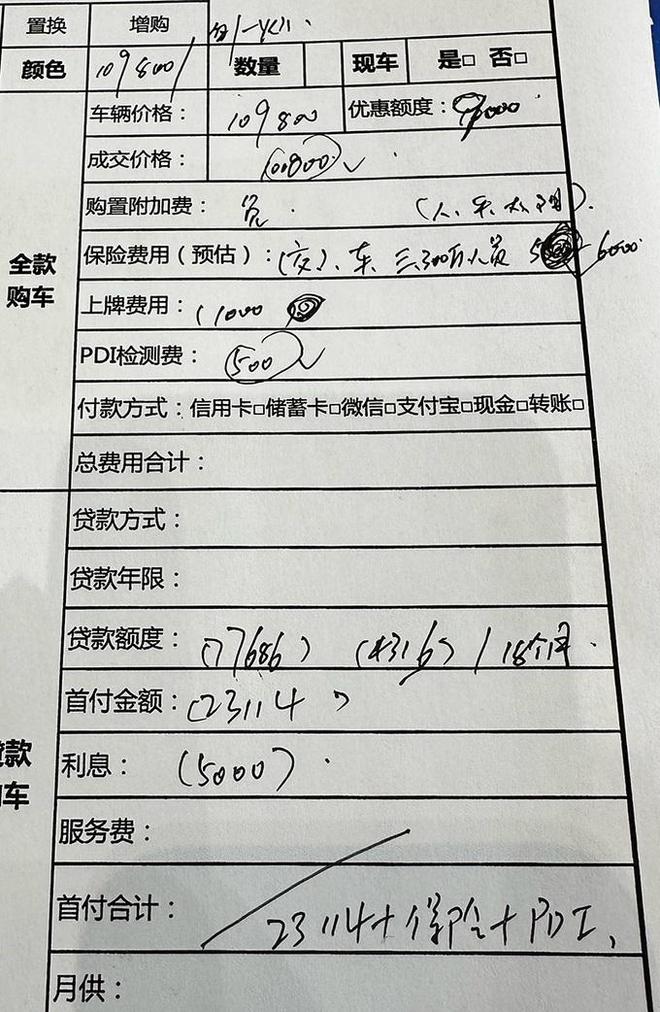 置换 增购
颜色 109800 数量 现车 是□ 否□
车辆价格： 109800 优惠额度： 9000
成交价格： 100800
购置附加费： 免. (人、平、太
全款购车
保险费用（预估）：(交)、车、三300万人员 6000
上牌费用： (1000
PDI检测费： (500)
付款方式：信用卡□储蓄卡□微信□支付宝□现金□转账□
总费用合计：
贷款方式：
贷款年限：
贷款额度： (77686) (4316) / 18个月.
首付金额： (23114)
款
车
利息： (5000).
服务费：
首付合计： 23114+保险+PDI、
月供：